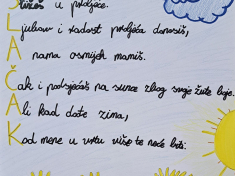 Stižeš u proljeće.
Ljubav i radost proljeća donosiš,
A nama osmijeh mamiš.
Čak i podsjećaš na sunce zbog svoje žute boje.
Ali kad dođe zima,
Kod mene u vrtu više te neće biti.